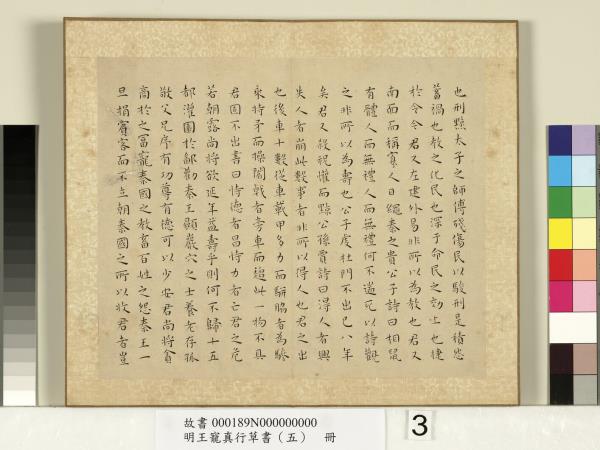 也刑黥太子之師傅殘傷民以駿刑是積怨
蓄禍也教之化民也深于命民之効上也捷
於令今君又左建外易非所以為教也君又
南面而稱寡人日繩秦之貴公子詩曰相鼠
有體人而無禮人而無禮何不遄死以詩觀
之非所以為壽也公子虔杜門不出已八年
矣君又殺祝懽而黥公孫賈詩曰得人者興
失人者崩此數事者非所以得人也君之出
也後車十數從車載甲多力而駢脇者為驂
乘持矛而操闟戟者旁車而趨此一物不具
君固不出書曰恃德者昌恃力者亡君之危
若朝露尚將欲延年益壽乎則何不歸十五
都灌園於鄙勸秦王顯巖穴之士養老存孤
敬父兄序有功尊有德可以少安君尚將貪
商於之富寵秦國之教畜百姓之怨秦王一
旦捐賓客而不立朝秦國之所以收君者豈
故書 000189N000000000
明王寵真行草書（五） 冊
3